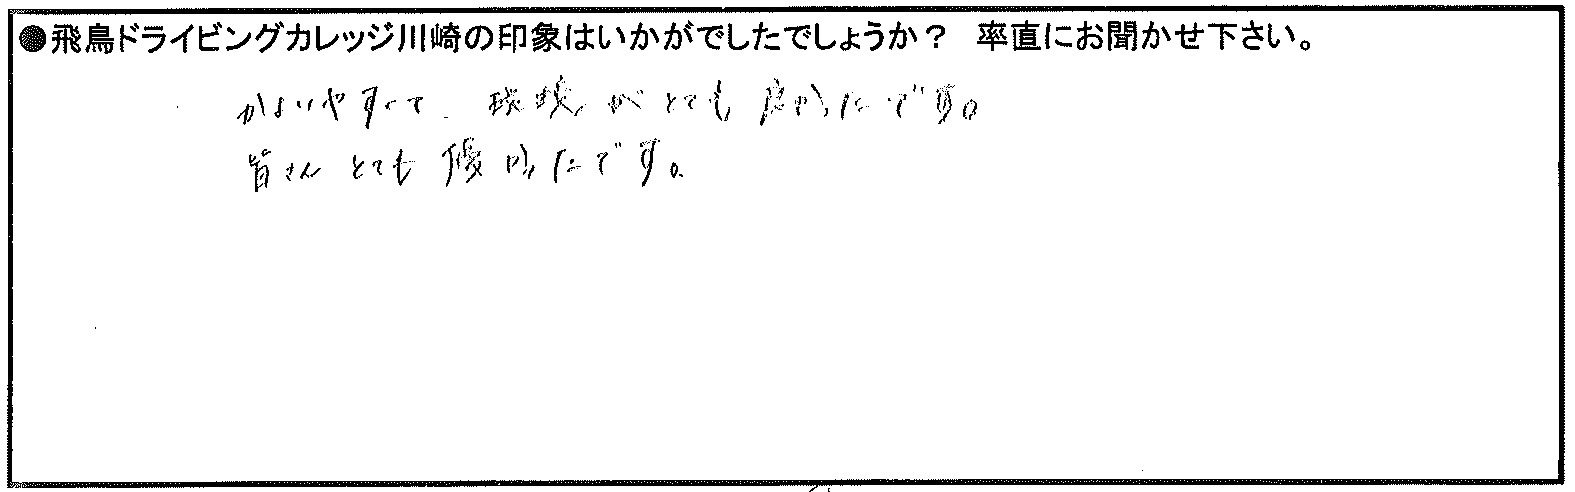 ●飛鳥ドライビングカレッジ川崎の印象はいかがでしたでしょうか？ 率直にお聞かせ下さい。
かよいやすくて、環境がとても良かったです。
皆さんとても優しかったです。